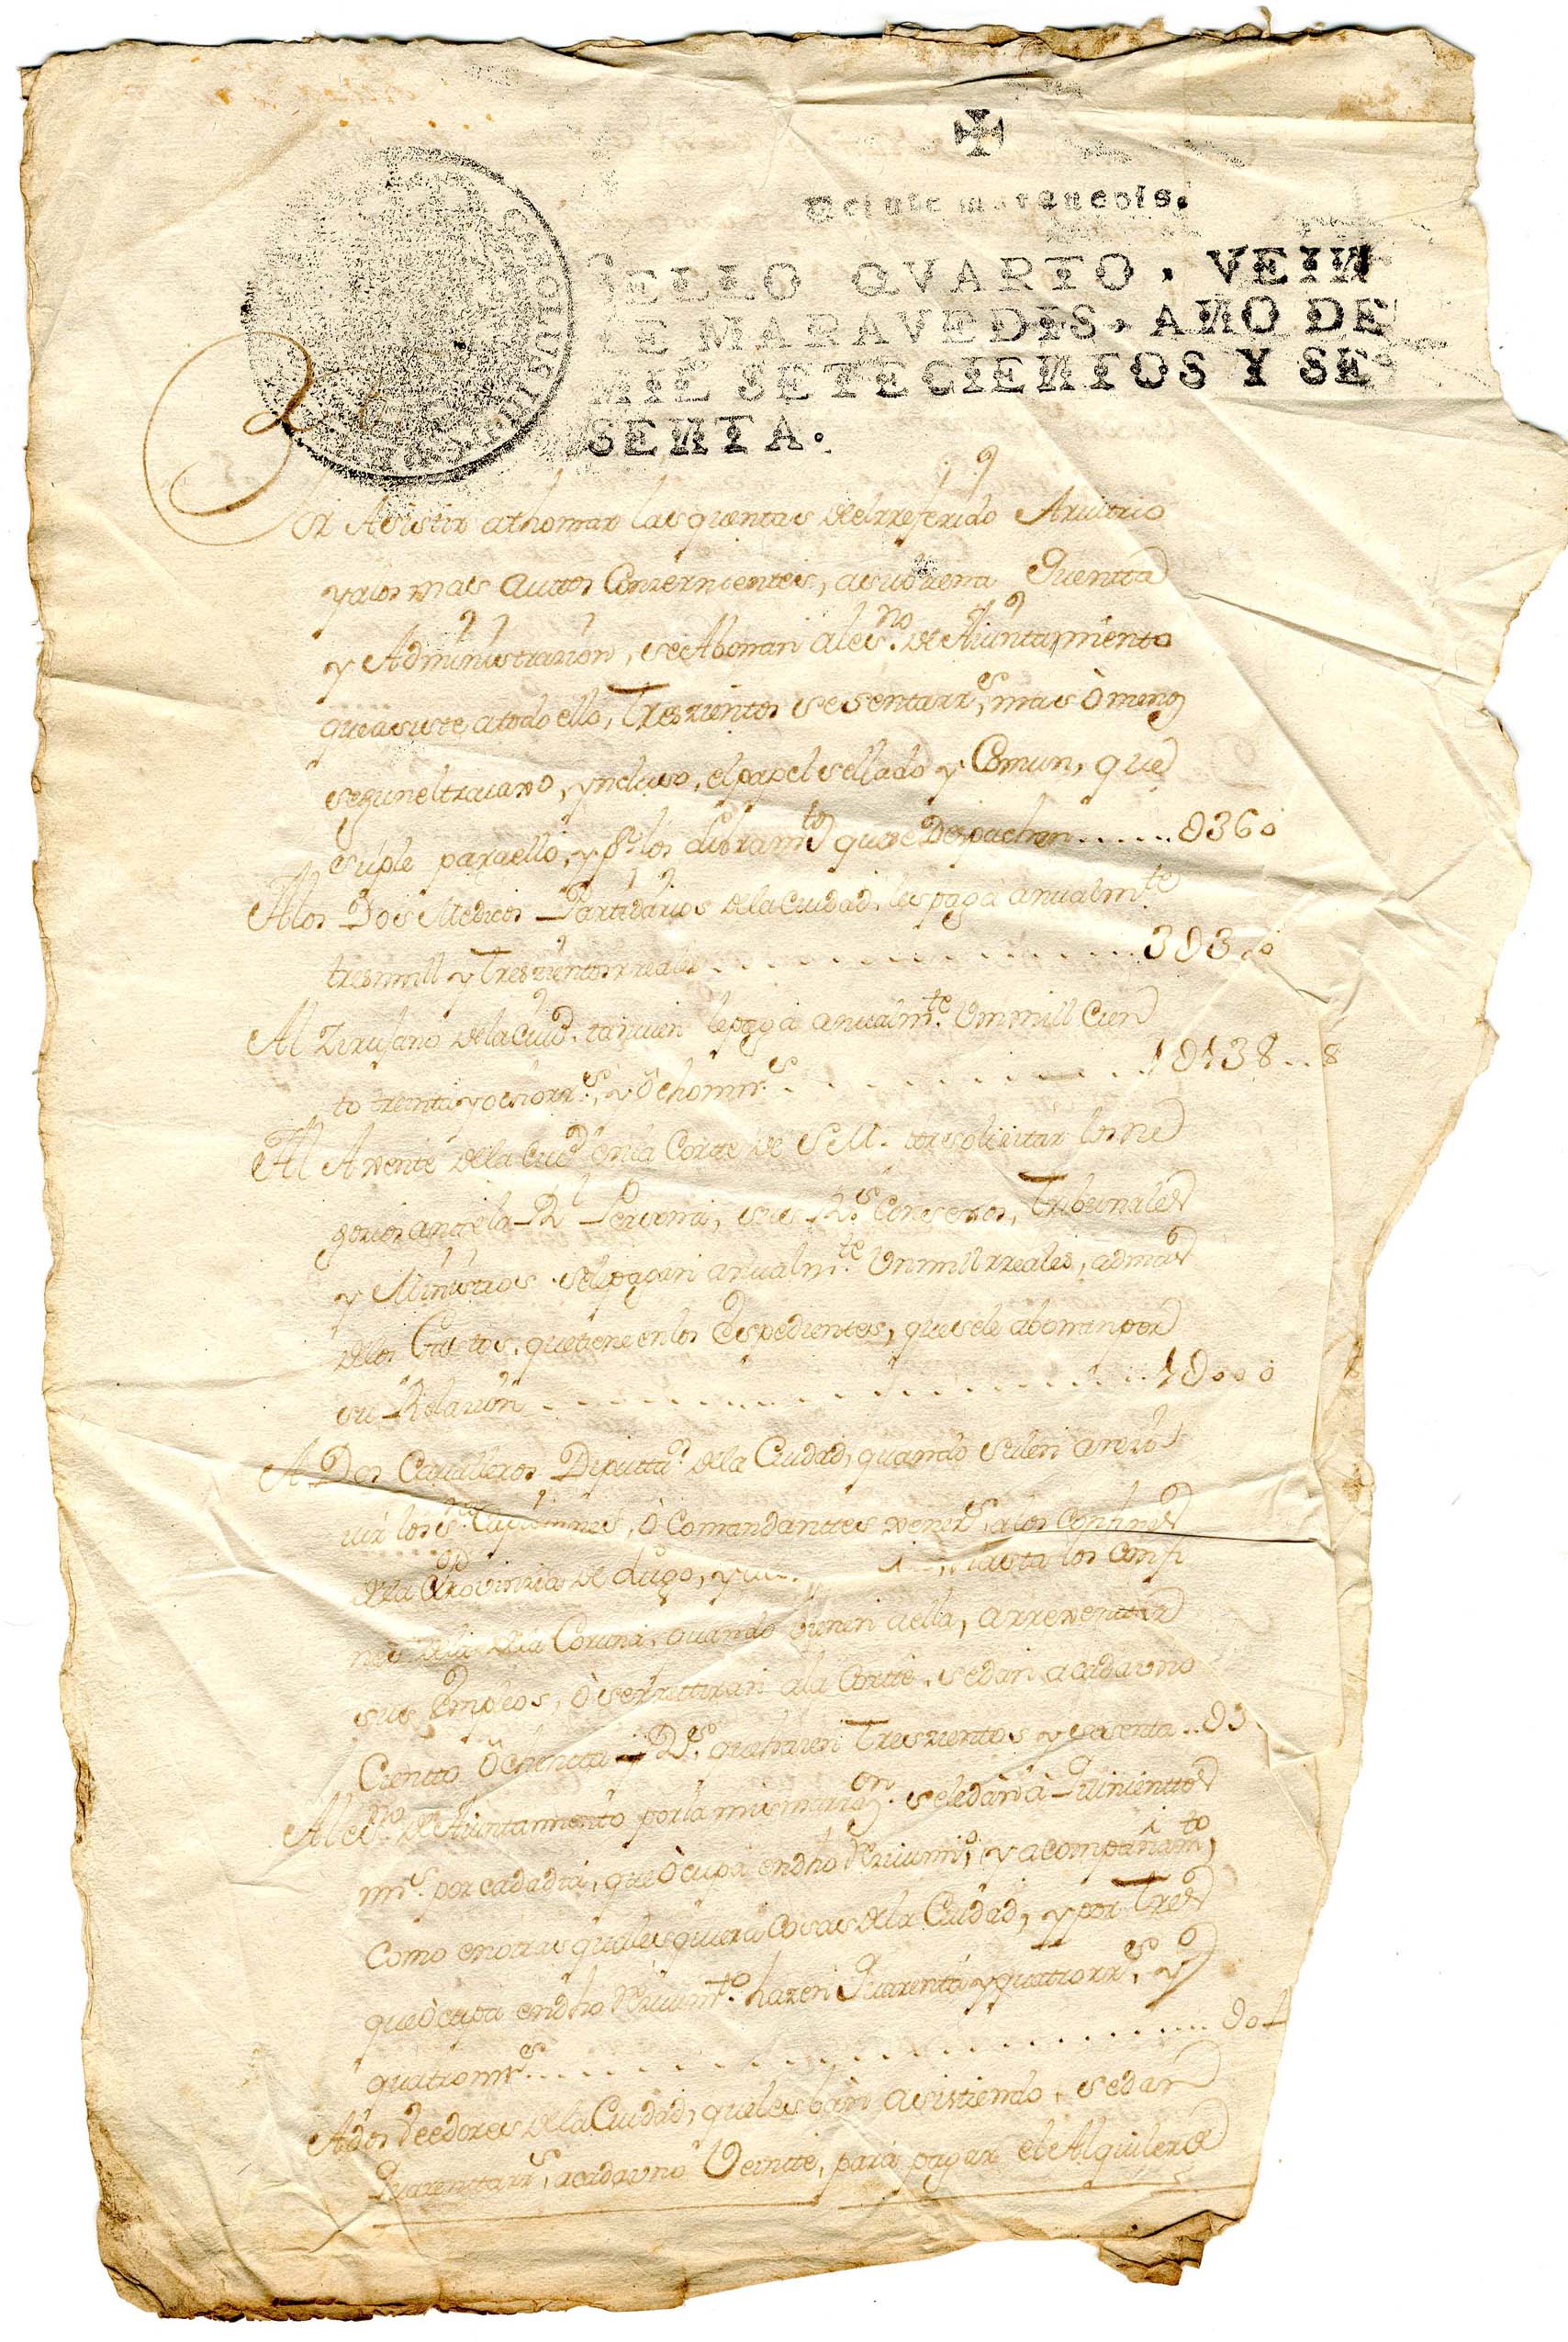 Veinte maravedis.
SELLO QVARTO, VEIN
TE MARAVEDIS, AÑO DE
MIL SETECIENTOS Y SE
SENTA.
Por Asistir athomar las quentas del rreferido Aruitrio
yalos mas autos Conzernientes, asubuena Quentta
y Administrazion, se Abonan al es.no de Aiuntamiento
que asiste atodo ello, Treszientos sesentarr.s, mas ò menos
segun eltrauaxo, yncluso, elpapel sellado y Comun, que
suple paraello, y p.a los libram.tos que se Despachan ...... U360
Alos Dos Medicos Partidarios dela Ciudad, les paga anualm.te
tresmill y Treszientos rreales ........ 3U300
Al Zirujano dela Ciud. tanuien lepaga anualm.te Unmill Cien
to treinta yochorr.s, y ôchomr.s ........ 1U138..8
Al Axente dela Ciud en la Corte de S M. por solizitar los ne
gozios ante la R.l Persona, sus R.s Consexos, Tribunales
y Ministros selepagan anualm.te Unmill rreales, admas
delos Gastos, quetiene en los Espedientes, quesele abonan por
su Relazion ........ 1U000
A Dos Caualleros Diputta.s dela Ciudad, quando salen areziu
uir los s.res Capitanes, ò Comandanttes xener.s, alos Confines
dela Provinzia de Lugo, y hasta los confi
nes dela dela Coruña, quando vienen aella, arrexenttar
sus Empleos, ò serrettiran ala Cortte, sedan acadauno
Cientto Ôchentta R.s, quehazen Treszientos y sesenta .. U3
Al es.no de Aiuntamiento porla misma razon. seledarà à Quinienttos
mr.s por cadadia, que òcupa endho Reziuim.to, y acompañam.to,
Como enotras qualesquiera Cosas dela Ciudad, y por Tres
que òcupa endho Reziuim.to hazen Quarenta yquatrorr.s, y
quatromr.s ........ U04
Ados Veedores dela Ciudad, queles ban asistiendo, sedan
Quarenttarr.s, acadauno Veintte, para pagar el Alquiler de